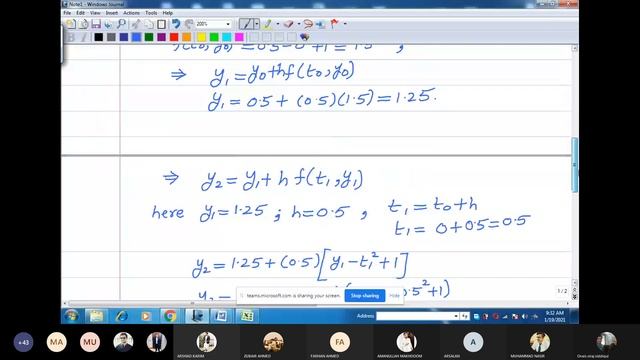 Note1 - Windows Journal
File Edit View Insert Actions Tools Help
200%
f(t0, y0) = 0.5 - 0 + 1 = 1.5 ;
⇒ y1 = y0 + h f(t0, y0)
y1 = 0.5 + (0.5)(1.5) = 1.25.
⇒ y2 = y1 + h f(t1, y1)
here y1 = 1.25 ; h = 0.5 , t1 = t0 + h
t1 = 0 + 0.5 = 0.5
y2 = 1.25 + (0.5)[y1 - t1² + 1]
y2 = 0.5² + 1)
1 / 2
teams.microsoft.com is sharing your screen. Stop sharing Hide
Address
9:32 AM
1/19/2021
+43 MA MU FA A
ARSHAD KARIM ZUBAIR AHMED FARHAN AHMED AMANULLAH MAKHDOOM ARSALAN MUHAMMAD NASIR